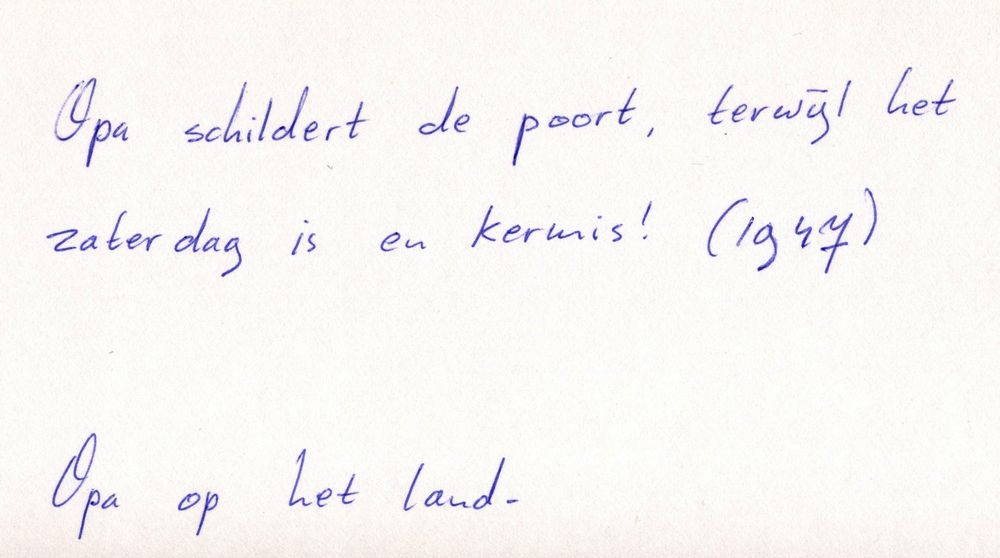 Opa schildert de poort, terwijl het
zaterdag is en kermis! (1947)
Opa op het land-